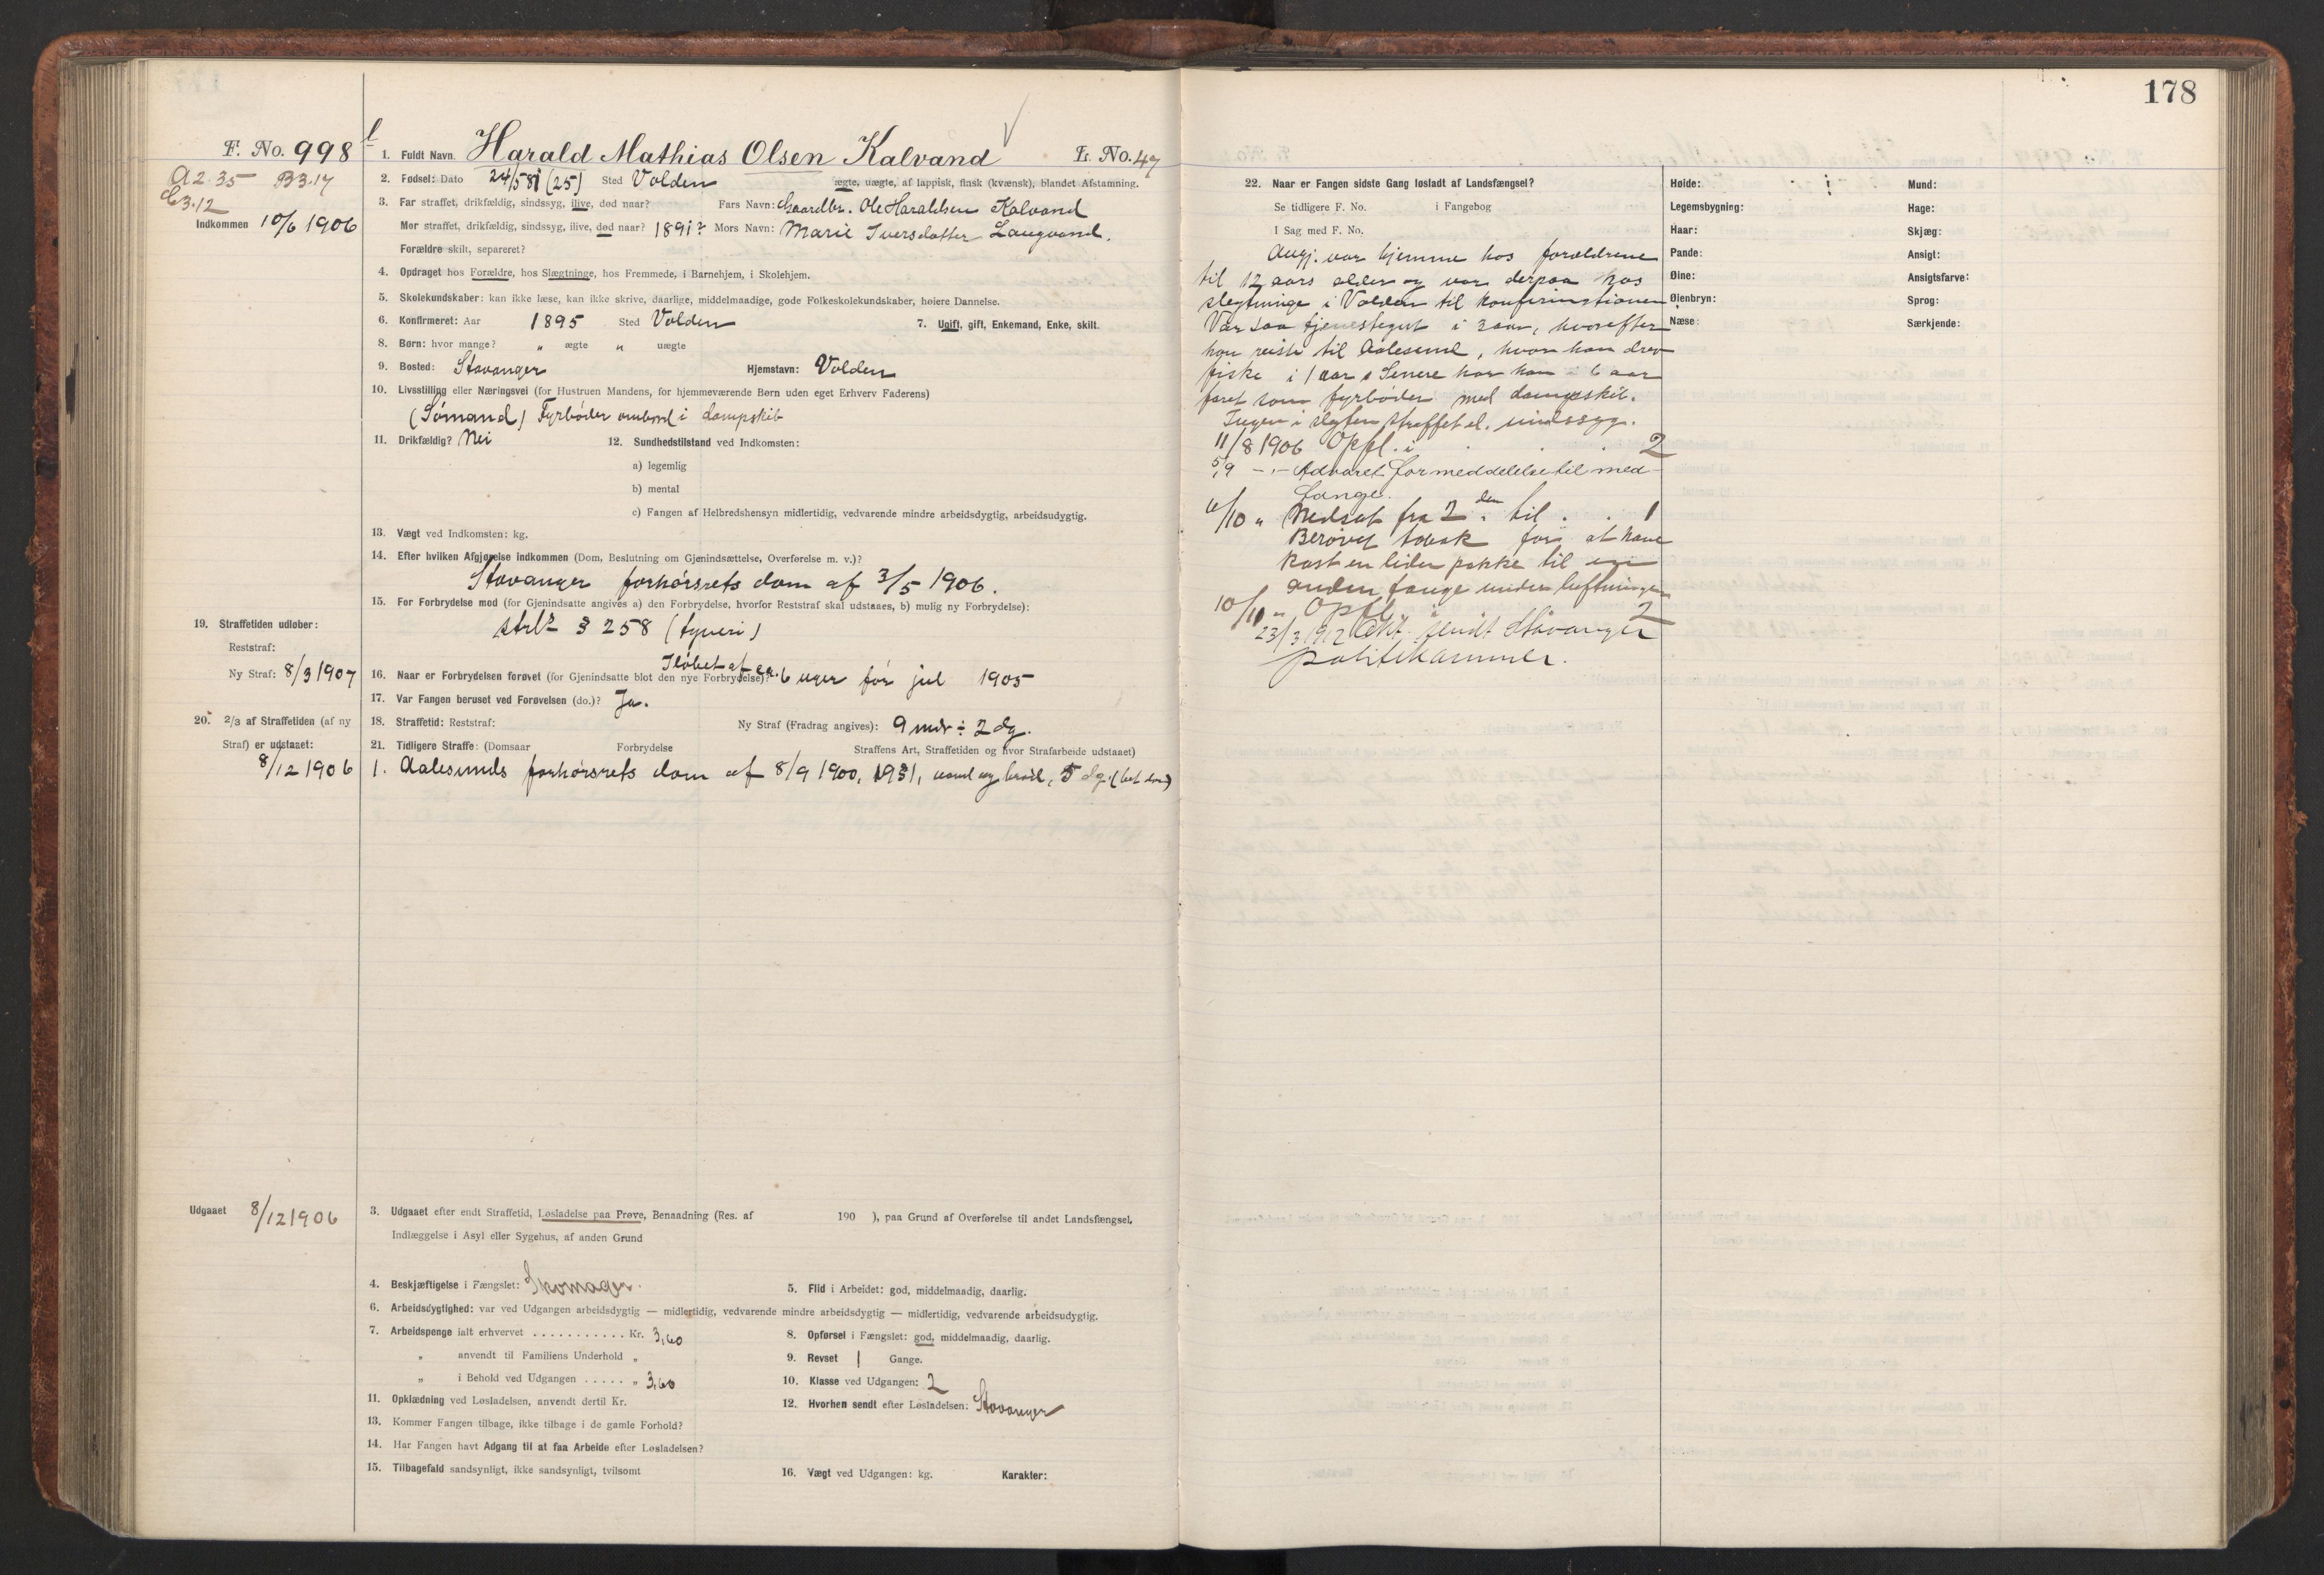 178
F. No. 998
A2.35 B3.17
C3.12
Indkommen 10/6 1906
1. Fuldt Navn. Harald Mathias Olsen Kalvand L. No. 47
2. Fødsel: Dato 24/5 81 (25) Sted Volden ægte, uægte, af lappisk, finsk (kvænsk), blandet Afstamning.
3. Far straffet, drikfældig, sindssyg, ilive, død naar? Fars Navn: Gaardbr. Ole Haraldsen Kalvand
Mor straffet, drikfældig, sindssyg, ilive, død naar? 1891? Mors Navn: Marie Iversdatter Langvand.
Forældre skilt, separeret?
4. Opdraget hos Forældre, hos Slægtninge, hos Fremmede, i Barnehjem, i Skolehjem.
5. Skolekundskaber: kan ikke læse, kan ikke skrive, daarlige, middelmaadige, gode Folkeskolekundskaber, høiere Dannelse.
6. Konfirmeret: Aar 1895 Sted Volden 7. Ugift, gift, Enkemand, Enke, skilt.
8. Børn: hvor mange? " ægte " uægte
9. Bosted: Stavanger Hjemstavn: Volden
10. Livsstilling eller Næringsvei (for Hustruen Mandens, for hjemmeværende Børn uden eget Erhverv Faderens)
(Sømand) Fyrbøder ombord i dampskib
11. Drikfældig? Nei 12. Sundhedstilstand ved Indkomsten:
a) legemlig
b) mental
c) Fangen af Helbredshensyn midlertidig, vedvarende mindre arbeidsdygtig, arbeidsudygtig.
13. Vægt ved Indkomsten: kg.
14. Efter hvilken Afgjørelse indkommen (Dom, Beslutning om Gjenindsættelse, Overførelse m. v.)?
Stavanger forhørsrets dom af 3/5 1906.
15. For Forbrydelse mod (for Gjenindsatte angives a) den Forbrydelse, hvorfor Reststraf skal udstaaes, b) mulig ny Forbrydelse):
strl. § 258 (tyveri)
19. Straffetiden udløber:
Reststraf:
Ny Straf: 8/3 1907
16. Naar er Forbrydelsen forøvet (for Gjenindsatte blot den nye Forbrydelse)? I løbet af ca. 6 uger før jul 1905
17. Var Fangen beruset ved Forøvelsen (do.)? Ja.
20. 2/3 af Straffetiden (af ny
Straf) er udstaaet:
8/12 1906
18. Straffetid: Reststraf: Ny Straf (Fradrag angives): 9 mdr ÷ 2 dg.
21. Tidligere Straffe: (Domsaar Forbrydelse Straffens Art, Straffetiden og hvor Strafarbeide udstaaet)
1. Aalesunds forhørsrets dom af 8/9 1900, vand og brød, 5 dg.
Udgaaet 8/12 1906
3. Udgaaet efter endt Straffetid, Løsladelse paa Prøve, Benaadning (Res. af 190 ), paa Grund af Overførelse til andet Landsfængsel,
Indlæggelse i Asyl eller Sygehus, af anden Grund
4. Beskjæftigelse i Fængslet: Skomager. 5. Flid i Arbeidet: god, middelmaadig, daarlig.
6. Arbeidsdygtighed: var ved Udgangen arbeidsdygtig — midlertidig, vedvarende mindre arbeidsdygtig — midlertidig, vedvarende arbeidsudygtig.
7. Arbeidspenge ialt erhvervet . . . . . . . . . . . Kr. 3,60 8. Opførsel i Fængslet: god, middelmaadig, daarlig.
" anvendt til Familiens Underhold " 9. Revset 1 Gange.
" i Behold ved Udgangen . . . . . " 3,60 10. Klasse ved Udgangen: 2
11. Opklædning ved Løsladelsen, anvendt dertil Kr. 12. Hvorhen sendt efter Løsladelsen: Stavanger
13. Kommer Fangen tilbage, ikke tilbage i de gamle Forhold?
14. Har Fangen havt Adgang til at faa Arbeide efter Løsladelsen?
15. Tilbagefald sandsynligt, ikke sandsynligt, tvilsomt 16. Vægt ved Udgangen: kg. Karakter:
22. Naar er Fangen sidste Gang løsladt af Landsfængsel?
Se tidligere F. No. i Fangebog
I Sag med F. No.
Angj. var hjemme hos forældrene
til 12 aars alder og var derpaa hos
slegtninge i Volden til konfirmationen
Var saa tjenestegut i 3 aar, hvorefter
han reiste til Aalesund, hvor han drev
fiske i 1 aar. Senere har han i 6 aar
faret som fyrbøder med dampskib.
Ingen i slegten straffet el. sindssyg.
11/8 1906 Oppl. i . . . 2
5/9 -"- Advaret for meddelelse til med-
fange.
6/10 " Nedsat fra 2den til . . 1
Berøvet tobak for at have
kast en liden pakke til en
anden fange under luftningen
10/11 " Oppl. i 2
23/3 1912 Akt. sendt Stavanger
politikammer.
Høide: Mund:
Legemsbygning: Hage:
Haar: Skjæg:
Pande: Ansigt:
Øine: Ansigtsfarve:
Øienbryn: Sprog:
Næse: Særkjende: